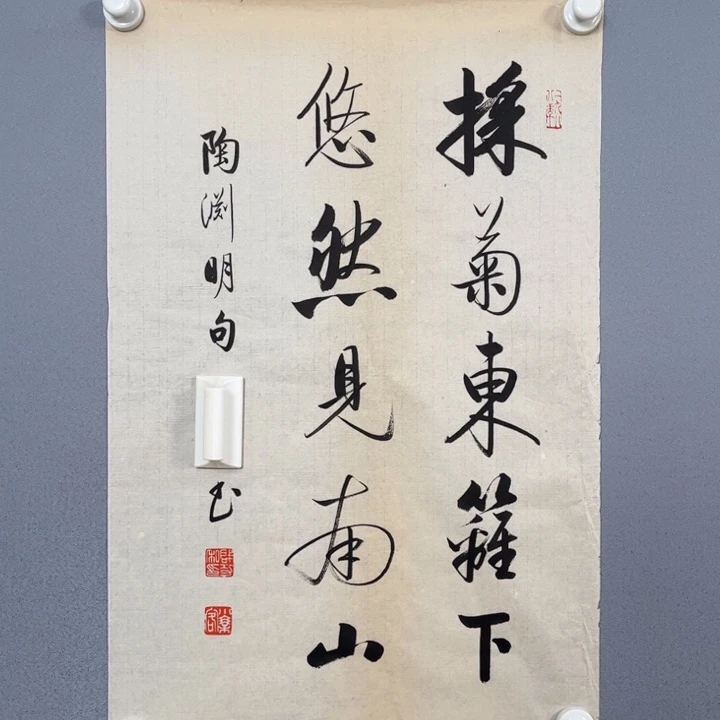 採菊東籬下
悠然見南山
陶淵明句
书